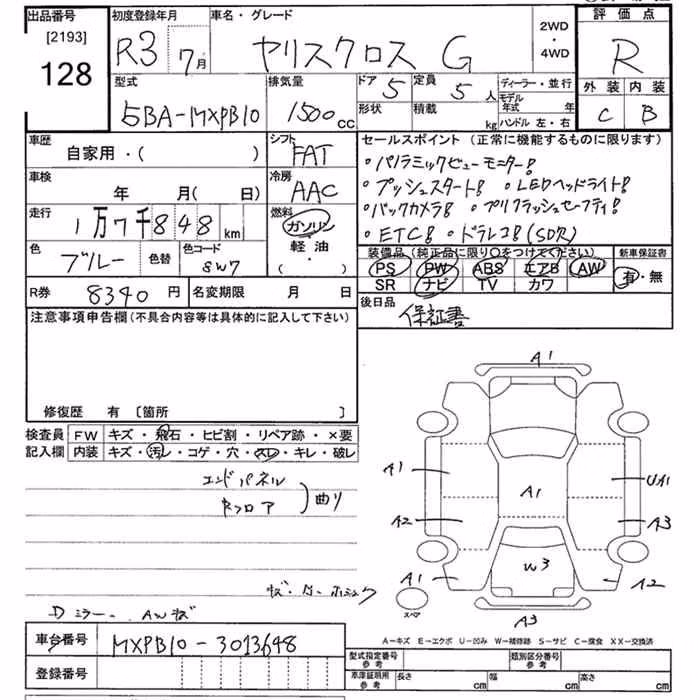 出品番号
[2193]
128
初度登録年月
R3 7月
車名・グレード
ヤリスクロス G
2WD
・
4WD
評価点
R
外装 内装
C B
型式
5BA-MXPB10
排気量
1500cc
ドア 5
定員 5人
形状
積載 kg
ディーラー・並行
モデル年式 年
ハンドル 左・右
車歴
自家用・( )
シフト
FAT
車検
年 月( 日)
冷房
AAC
走行
1万7千848km
燃料
ガソリン
軽油
・
( )
色
ブルー
色替
色コード
8W7
セールスポイント(正常に機能するものに限ります)
・パノラミックビューモニター!
・プッシュスタート! ・LEDヘッドライト!
・バックカメラ! ・プリクラッシュセーフティ!
・ETC! ・ドラレコ!(SDR)
装備品(純正品に限り○をつけてください)
PS PW ABS エアB AW
SR ナビ TV カワ
新車保証書
有・無
R券 8340円
名変期限 月 日
後日品
保証書
注意事項申告欄(不具合内容等は具体的に記入して下さい)
修復歴 有 〔箇所 〕
検査員
記入欄
FW キズ・飛石・ヒビ割・リペア跡・×要
内装 キズ・汚レ・コゲ・穴・スレ・キレ・破レ
エンドパネル
Rフロア
曲り
Dミラー AWキズ
A1
A1
A2
A1
A1
UA1
A3
A2
W3
A3
スペア
A-キズ E-エクボ U-凹み W-補修跡 S-サビ C-腐食 XX-交換済
車台番号
MXPB10-3013648
登録番号
型式指定番号
参考
類別区分番号
参考
車庫証明用
参考
長さ cm
幅 cm
高さ cm